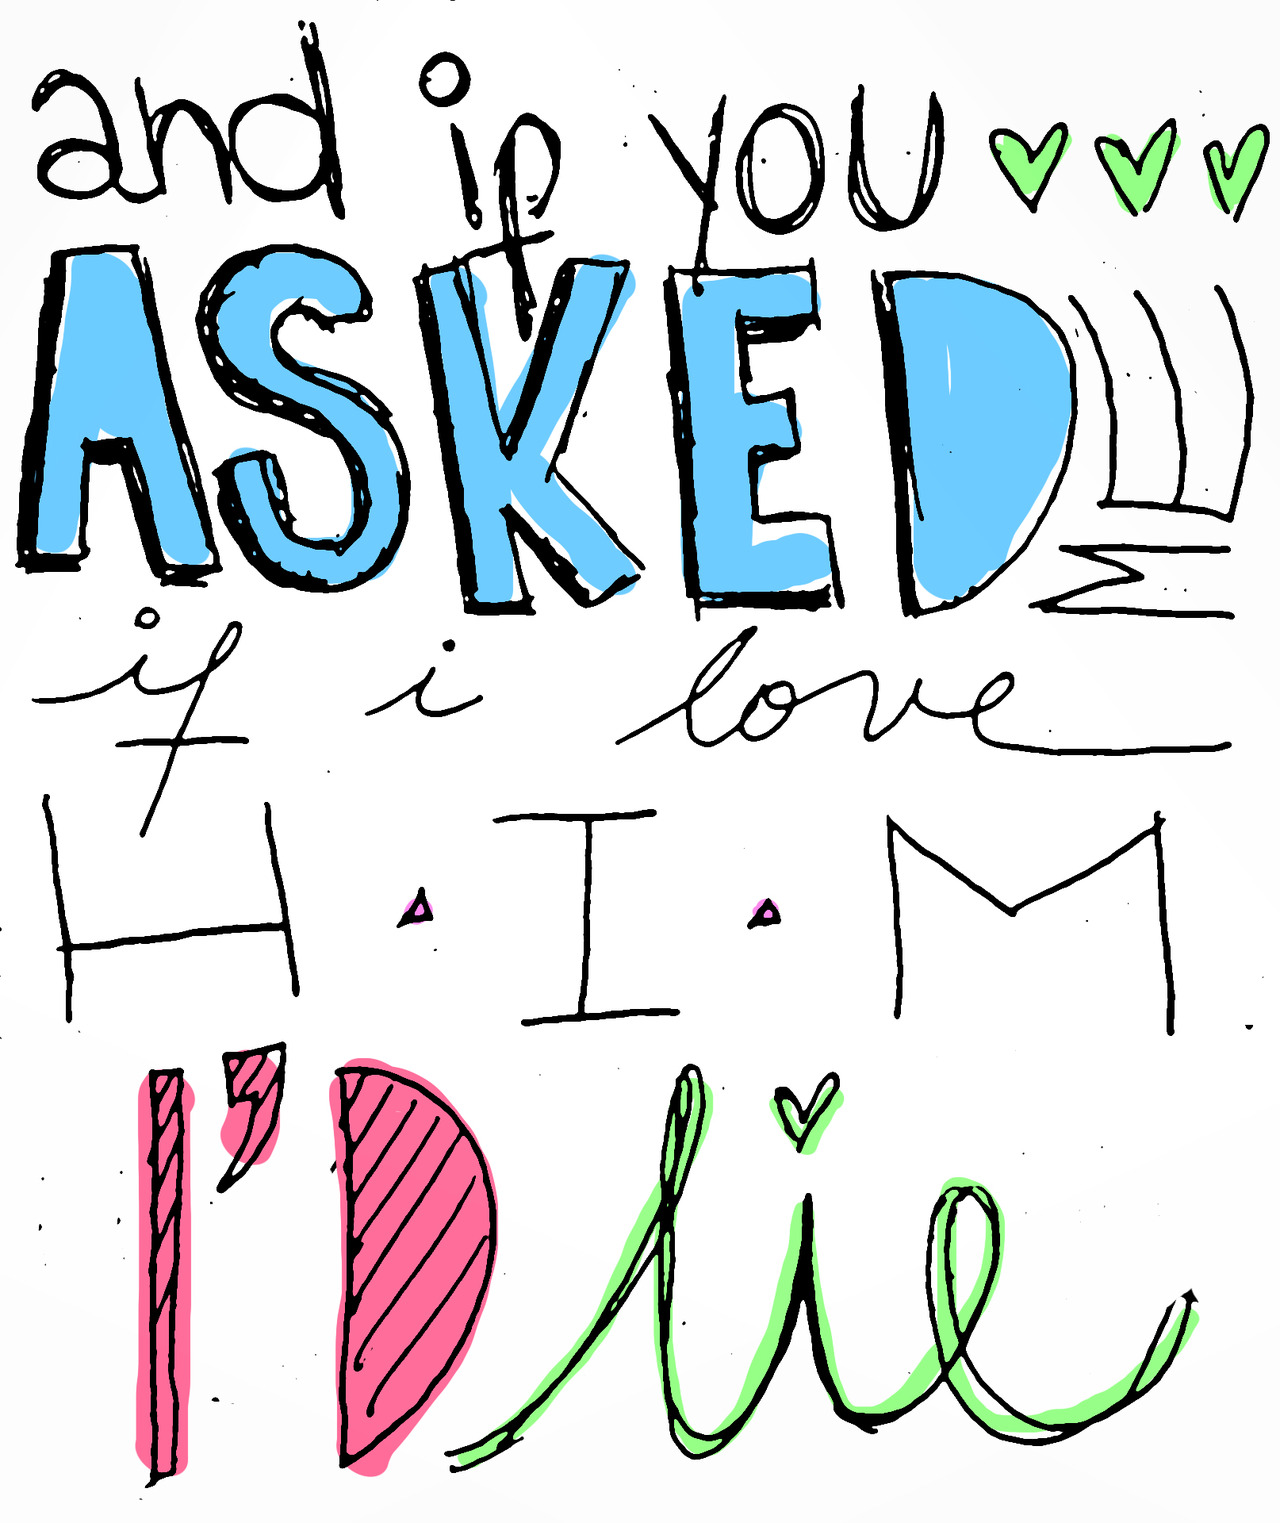 and if you
ASKED ME
if i love
H·I·M
I'D lie